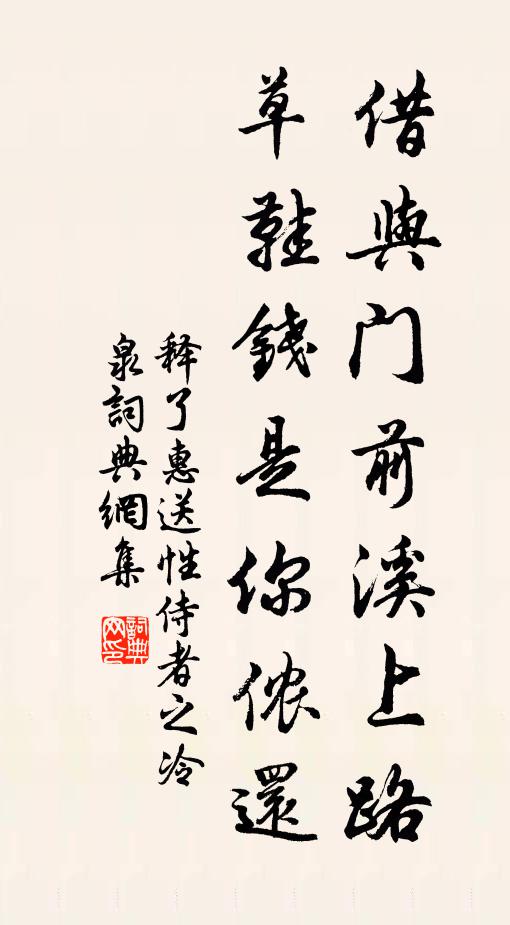 借與门前溪上路
草鞋錢是你侬還
释了惠送性侍者之冷
泉詞典網集
詞典网印